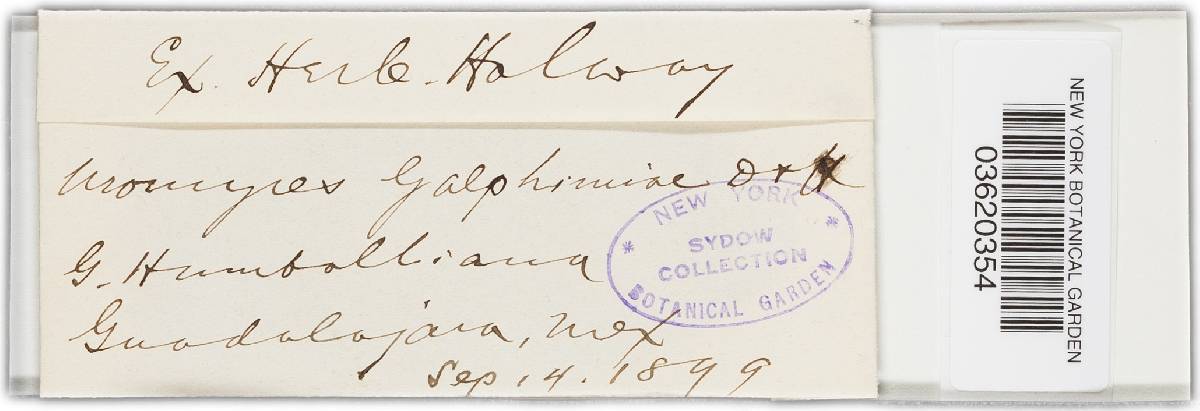 Ex. Herb. Holway
Uromyces Galphimiae D + H
G. Humboldtiana
Guadalajara, Mex
Sep. 14. 1899
NEW YORK
* SYDOW *
COLLECTION
BOTANICAL GARDEN
NEW YORK BOTANICAL GARDEN
03620354